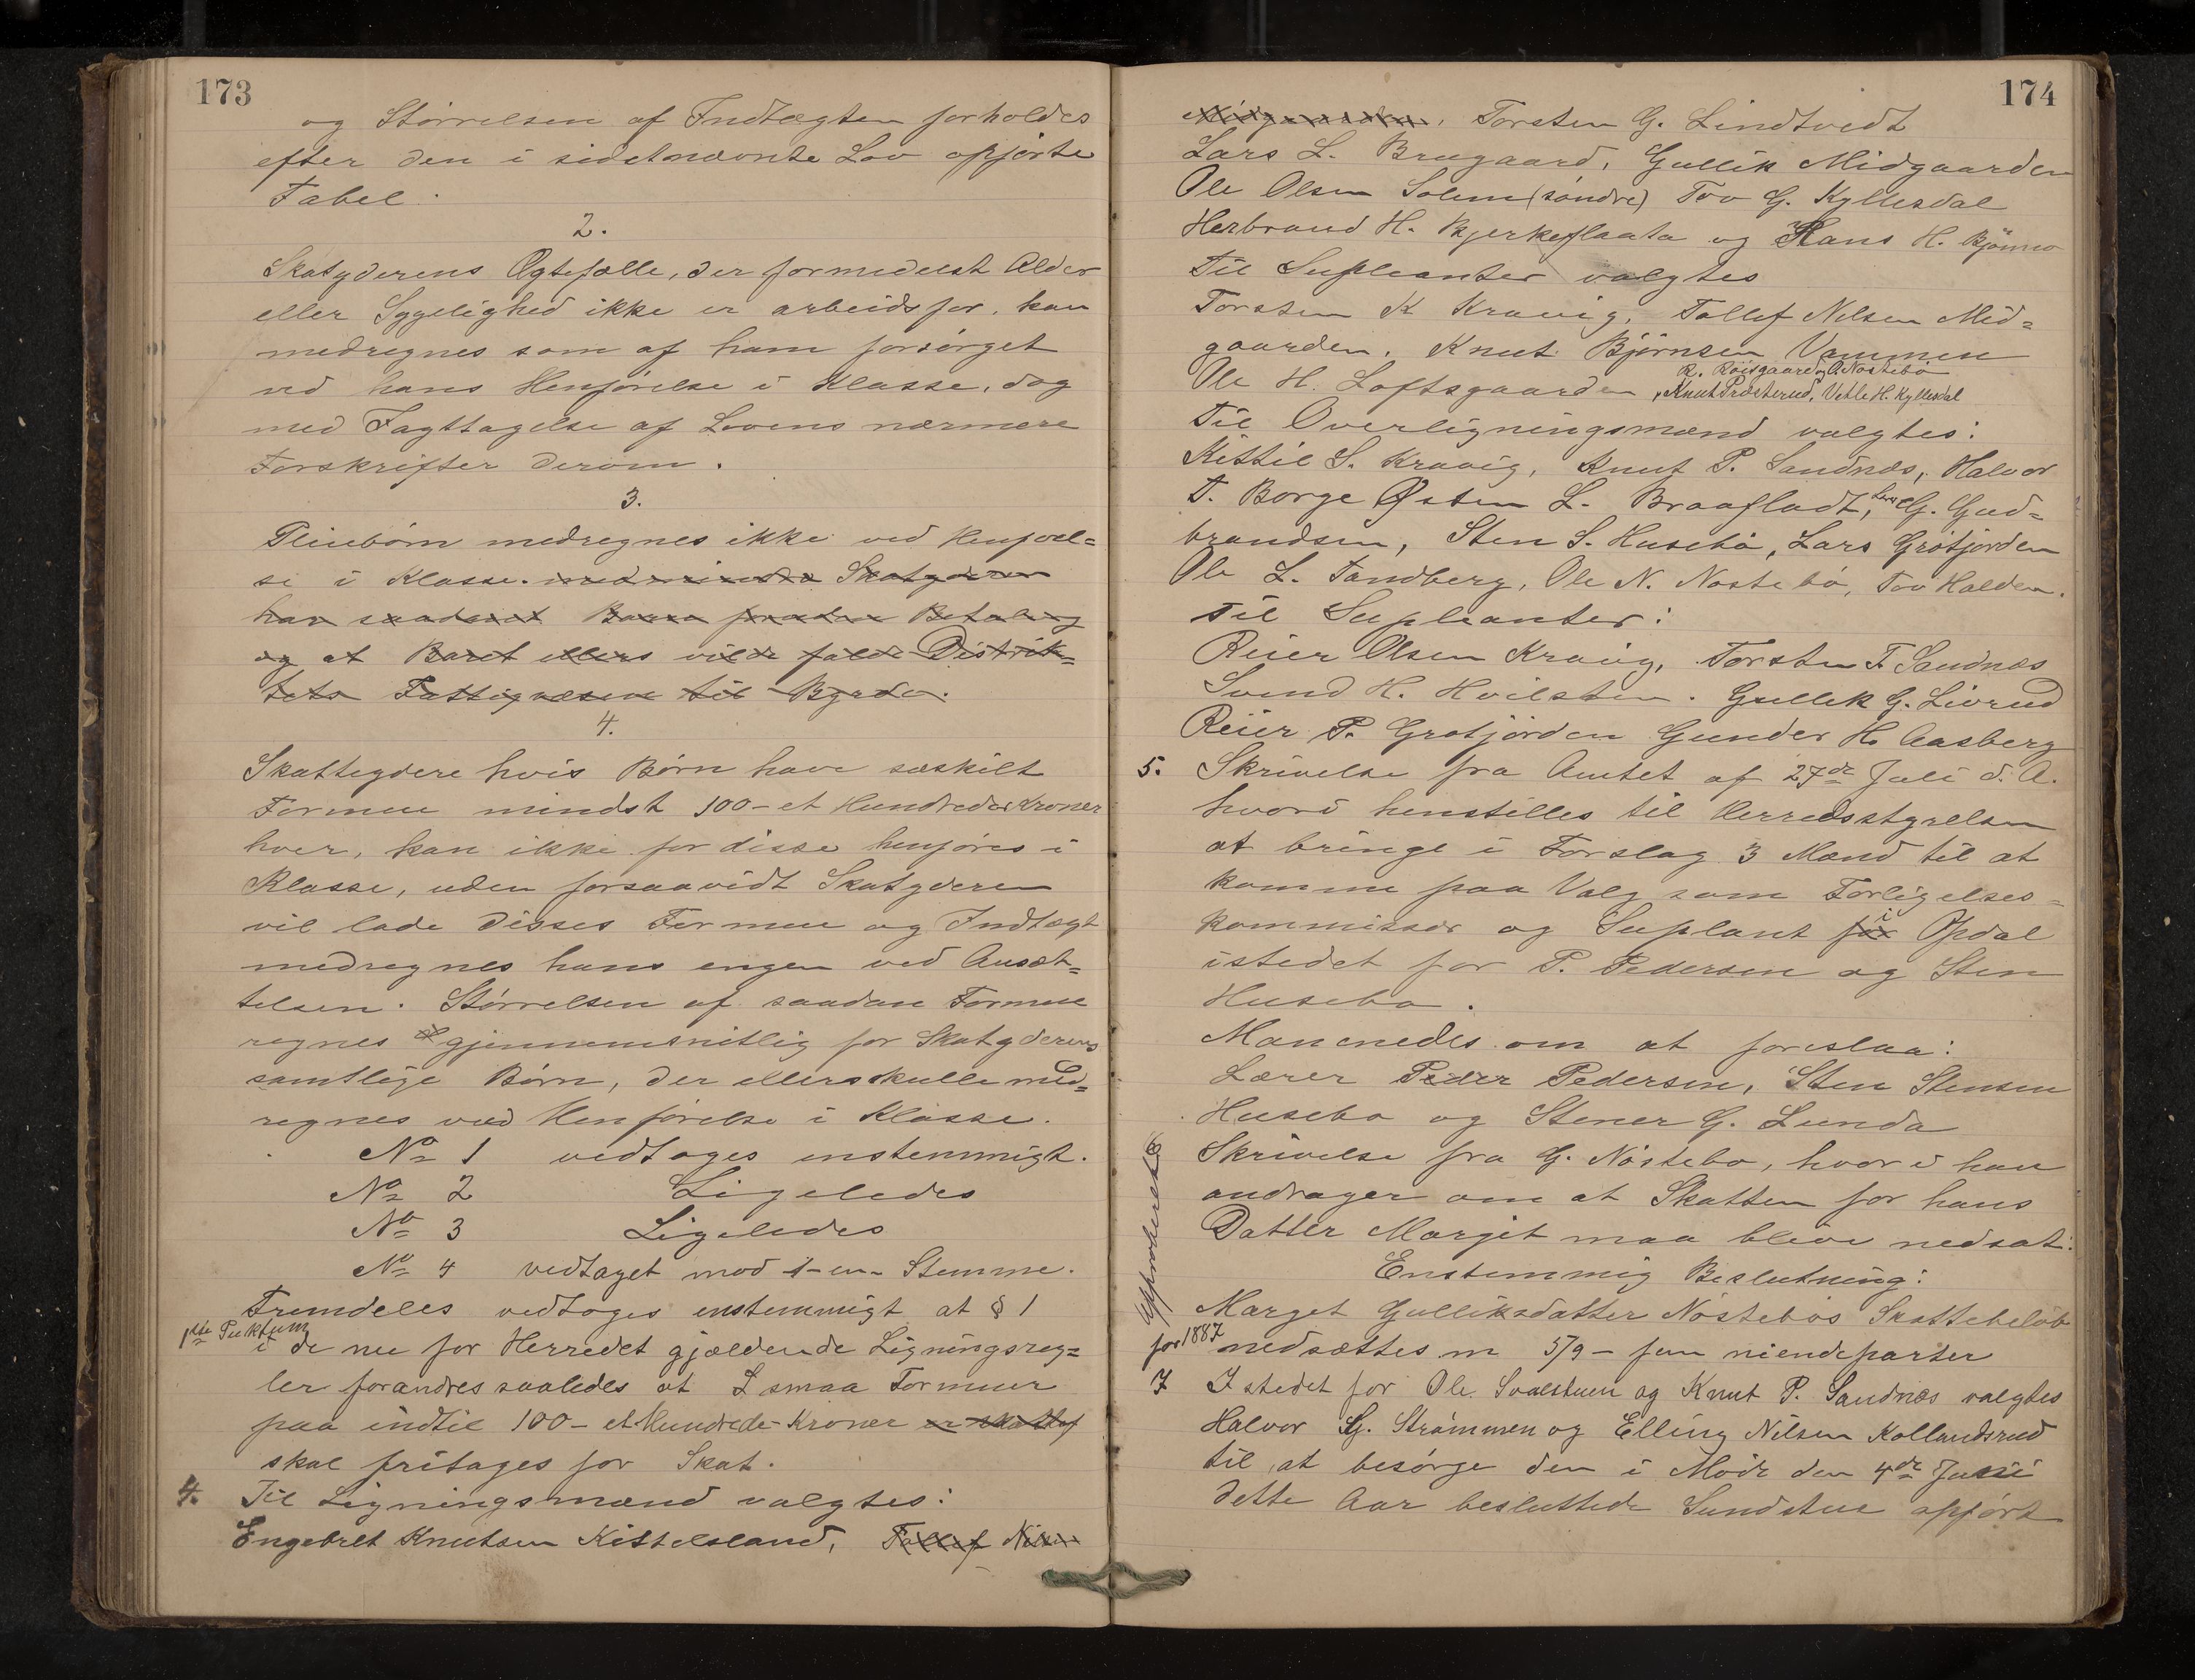 173
og Størrelsen af Indtægten forholdes
efter den i sidstnævnte Lov opførte
Tabel.
2.
Skatyderens Ægtefælle, der formedelst Alder
eller Sygelighed ikke er arbeidsfør, kan
medregnes som af ham forsørget
ved hans Henførelse i Klasse, dog
med Iagttagelse af Lovens nærmere
Forskrifter derom.
3.
Pleiebørn medregnes ikke ved Henførel=
se i Klasse. medmindre Skatyderen
har saadant Barn foruden Betaling
og at Baret ellers vilde falde Distrik=
tets Fattigvæsen til Byrde.
4.
Skattegdere hvis Børn have særskilt
Formue mindst 100 - et Hundrede Kroner
hver, kan ikke for disse henføres i
Klasse, uden forsaavidt Skatyderen
vil lade disses Formue og Indtægt
medregnes hans engen ved Ansæt=
telsen. Størrelsen af saadan Formue
regnes gjennemsnitlig for Skatyderens
samtlige Børn, der ellers skulle med=
regnes ved Henførelse i Klasse.
No 1 vedtoges enstemmigt.
No 2 Ligeledes
No 3 Ligeledes
No 4 vedtaget mod 1 - en - Stemme.
Fremdeles vedtoges enstemmigt at § 1
1ste Puktum
i de nu for Herredet gjældende Ligningsreg=
ler forandres saaledes at smaa Formuer
paa indtil 100 - et Hundrede Kroner er skattef
skal fritages for Skat.
4. Til Ligningsmænd valgtes:
Engebret Knutsen Kittelsland, Tollef Nilsen
174
Midgaarden, Torsten G. Lindtvedt
Lars L. Brugaard, Gullik Midgaarden
Ole Olsen Solem (søndre) Tov G. Kyllesdal
Herbrand H. Bjerkeflaata og Hans H. Bjønno
Til Supleanter valgtes
Torsten K Kravig, Tollef Nilsen Mid=
gaarden, Knut Bjørnsen Vammen
R. Røisgaard og O. Nøstebø
Ole H. Loftsgaarden, Knut Præsterud, Vetle H. Kyllesdal
Til Overligningsmænd valgtes:
Kittil S. Kravig, Knut P. Sandnæs, Halvor
T. Borge Østen L. Braafladt, Lars G. Gud=
brandsen, Sten S. Husebø, Lars Grøtjorden
Ole L. Tandberg, Ole N. Nøstebø, Tov Halden.
Til Supleanter:
Reier Olsen Kravig, Torsten T. Sandnæs
Svend H. Hvilsten. Gullik G. Livrud
Reier P. Grøtjorden Gunder H. Aasberg
5. Skrivelse fra Amtet af 27de Juli d. A.
hvori henstilles til Herredsstyrelsen
at bringe i Forslag 3 Mænd til at
komme paa Valg som Forligelses=
kommissær og Suplant for i Opdal
istedet for P. Pedersen og Sten
Husebø.
Man enedes om at foreslaa:
Lærer Peder Pedersen, Sten Stensen
Husebø og Stener G. Lunda
Skrivelse fra G. Nøstebø, hvori han
andrager om at Skatten for hans
Datter Margit maa blive nedsat.
Enstemmig Beslutning:
Approberet
Marget Gulliksdatter Nøstebøs Skattebeløb
for 1887 nedsættes m 5/9 - fem niendeparter
7 Istedet for Ole Svalstuen og Knut P. Sandnæs valgtes
Halvor G. Strømmen og Elling Nilsen Kollandsrud
til at besørge den i Møde den 4de Juli
dette Aar besluttede Sundstue opført